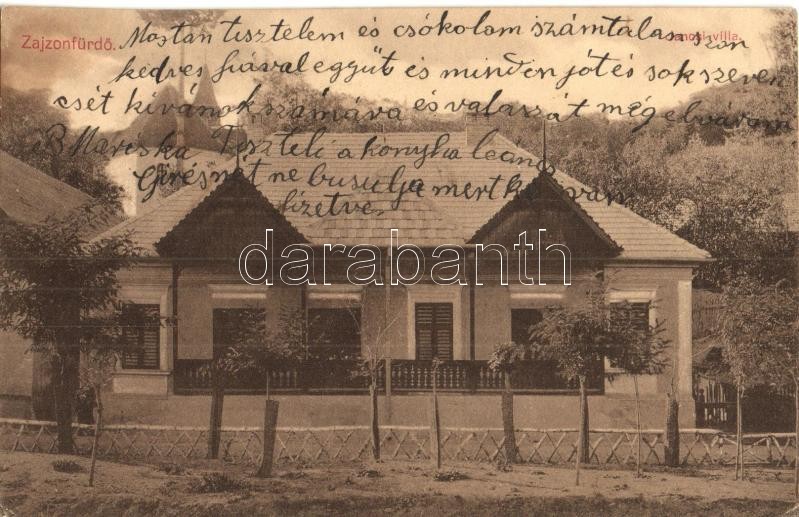 Zajzonfürdő.
villa.
Mostan tisztelem és csókolom számtalanszor
kedves fiával együt és minden jót és sok szeren
csét kívánok számára és valaszát még elvárom
B Mariska Tiszteli a konyha leans
ne busulja mert
fizetve.
darabanth